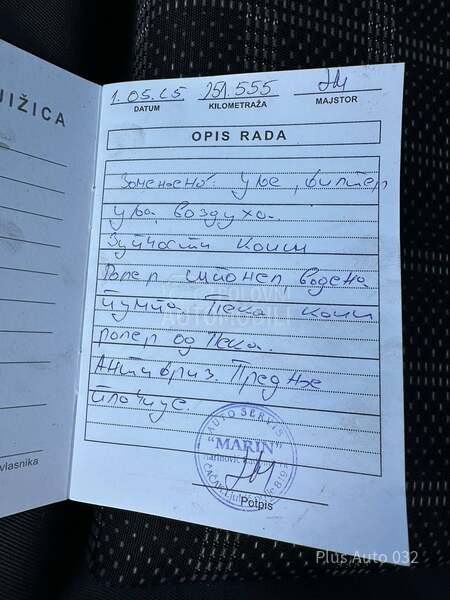 JIŽICA
1.05.25 251.555
DATUM KILOMETRAŽA MAJSTOR
OPIS RADA
Замењено: Уље, филтер
уља, ваздуха.
Зупчасти каиш
Ролер шпанер, водена
пумпа Пека каиш
ролер од Пека.
Антифриз. Предње
плочице.
AUTO SERVIS
"MARIN"
ČAČAK
Potpis
vlasnika
POLOVNI
AUTOMOBILI
Plus Auto 032